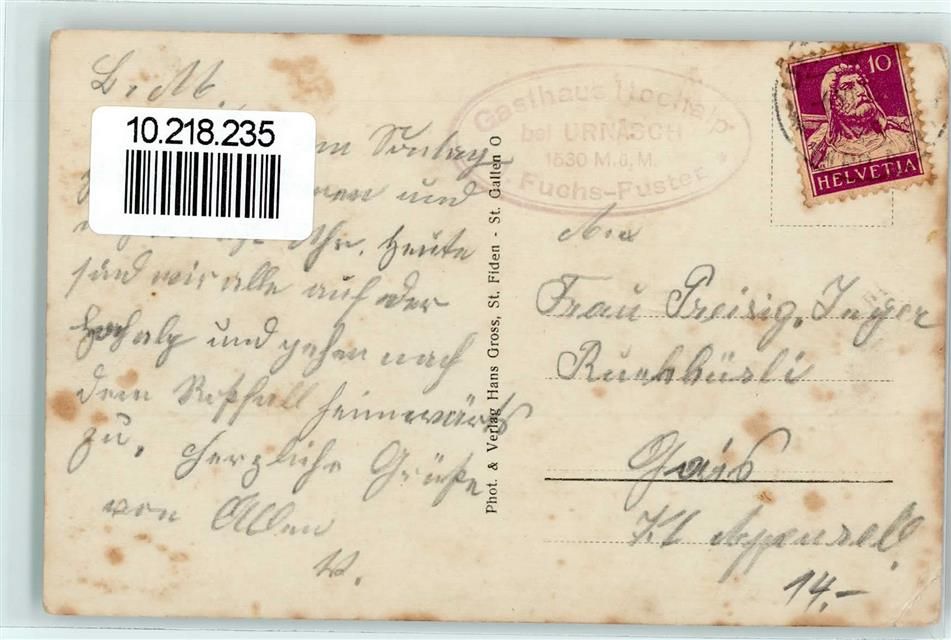 L. M.
10.218.235
Sonntag
und
Uhr. Heute
sind wir alle auf der
Hochalp und gehen nach
dem Roßfall heimwärts
zu. Herzliche Grüße
von Allen
W.
Phot. & Verlag Hans Gross, St. Fiden - St. Gallen O
Gasthaus Hochalp
bei URNÄSCH
1530 M.ü.M.
Fuchs-Fuster
10
HELVETIA
An
Frau Preisig, Jnger
Ruehbüsli
Gais
Kt Appenzell.
14.-